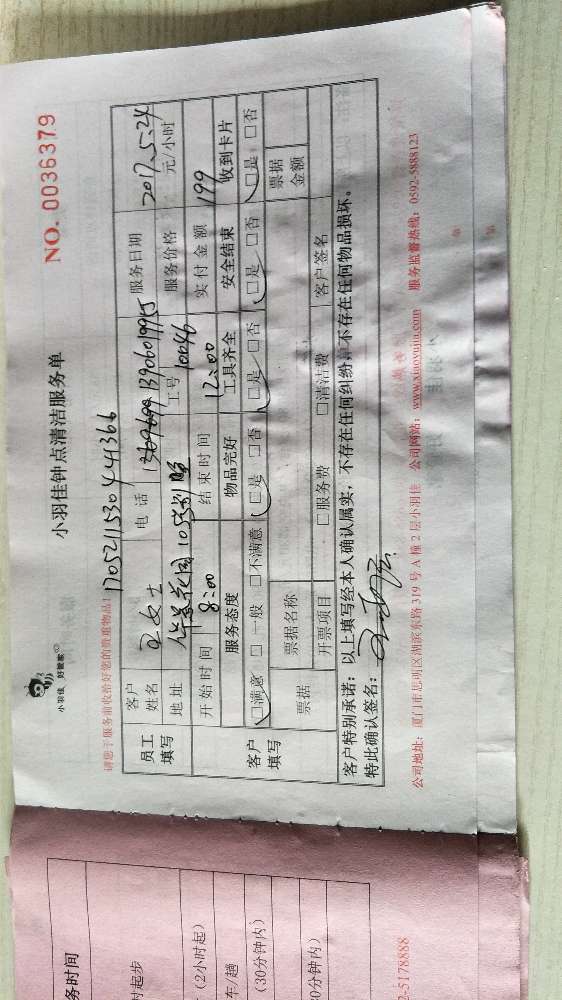 小羽佳 好管家
小羽佳钟点清洁服务单
NO. 0036379
请您于服务前收拾好您的贵重物品!
1705211530441366
员工填写
客户姓名 王女士 电话 13906019975 服务日期 2017.5.24
地址 工号 10046 服务价格 元/小时
开始时间 8:00 结束时间 12:00 实付金额 199
客户填写
服务态度 物品完好 工具齐全 安全结束 收到卡片
□满意 □一般 □不满意 □是 □否 □是 □否 □是 □否 □是 □否
票据 票据名称 票据金额
开票项目 □服务费 □清洁费 客户签名
客户特别承诺：以上填写经本人确认属实，不存在任何纠纷，不存在任何物品损坏。
特此确认签名：
公司地址：厦门市思明区湖滨东路319号A幢2层小羽佳 公司网站：www.xiaoyujia.com 服务监督热线：0592-5888123
务时间
时起步
(2小时起)
车/趟
(30分钟内)
30分钟内)
2-5178888